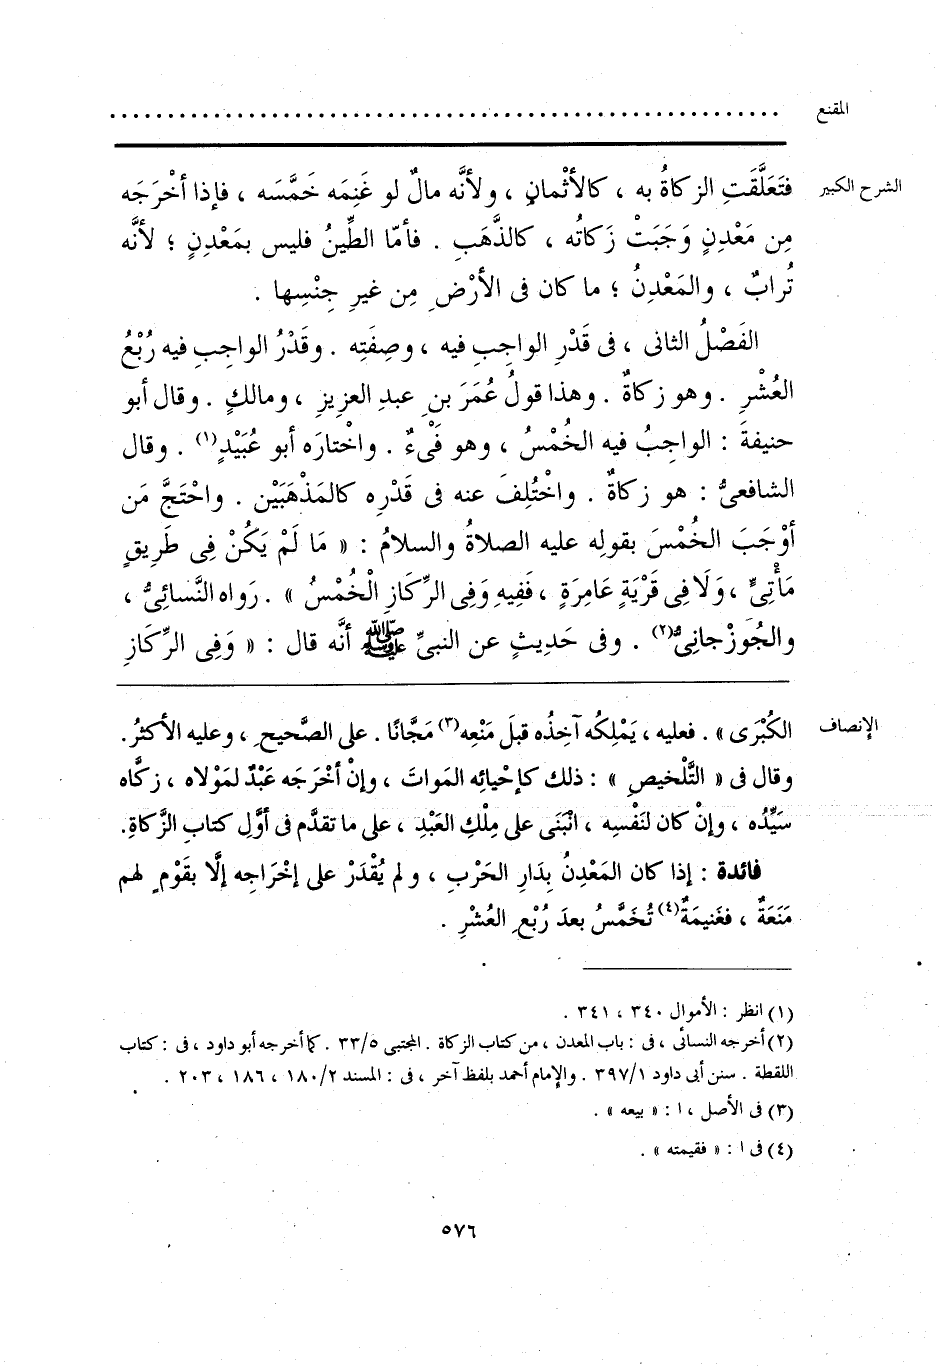 المقنع ........................................................
الشرح الكبير فَتَعَلَّقَتِ الزكاةُ به ، كالأثْمانِ ، ولأنَّه مالٌ لو غَنِمَه خَمَّسَه ، فإذا أخْرَجَه
مِن مَعْدِنٍ وَجَبَتْ زَكاتُه ، كالذَّهَبِ . فأمّا الطِّينُ فليس بمَعْدِنٍ ؛ لأنَّه
تُرابٌ ، والمَعْدِنُ ؛ ما كان فى الأرْضِ مِن غيرِ جِنْسِها .
الفَصْلُ الثانى ، فى قَدْرِ الواجِبِ فيه ، وصِفَتِه . وقَدْرُ الواجبِ فيه رُبْعُ
العُشْرِ . وهو زكاةٌ . وهذا قولُ عُمَرَ بنِ عبدِ العزيزِ ، ومالكٍ . وقال أبو
حنيفةَ : الواجبُ فيه الخُمْسُ ، وهو فَىْءٌ . واخْتارَه أبو عُبَيْدٍ(١) . وقال
الشافعىُّ : هو زكاةٌ . واخْتُلِفَ عنه فى قَدْرِه كالمَذْهَبَيْن . واحْتَجَّ مَن
أوْجَبَ الخُمْسَ بقولِه عليه الصلاةُ والسلامُ : « مَا لَمْ يَكُنْ فِى طَرِيقٍ
مَأْتِىٍّ ، وَلَا فِى قَرْيَةٍ عَامِرَةٍ ، فَفِيهِ وَفِى الرِّكَازِ الْخُمْسُ » . رَواه النَّسائِىُّ ،
والجُوزْجانِىُّ(٢) . وفى حَدِيثٍ عن النبىِّ ﷺ أنَّه قال : « وَفِى الرِّكَازِ
الإنصاف الكُبْرَى » . فعليه ، يَمْلِكُه آخِذُه قبلَ مَنْعِه(٣) مَجَّانًا . على الصَّحيحِ ، وعليه الأكثرُ.
وقال فى « التَّلْخيصِ » : ذلك كإحْيائِه المَواتَ ، وإنْ أخْرَجَه عَبْدٌ لمَوْلاه ، زكَّاه
سَيِّدُه ، وإنْ كان لنَفْسِه ، انْبَنَى على مِلْكِ العَبْدِ ، على ما تقدَّم فى أوَّلِ كتابِ الزَّكاةِ.
فائدة : إذا كان المَعْدِنُ بِدَارِ الحَرْبِ ، ولم يُقْدَرْ على إخْراجِه إلَّا بقَوْمٍ لهم
مَنَعَةٌ ، فغَنيمَةٌ(٤) تُخَمَّسُ بعدَ رُبْعِ العُشْرِ .
(١) انظر : الأموال ٣٤٠ ، ٣٤١ .
(٢) أخرجه النسائى ، فى : باب المعدن ، من كتاب الزكاة . المجتبى ٣٣/٥ . كما أخرجه أبو داود ، فى : كتاب
اللقطة . سنن أبى داود ٣٩٧/١ . والإمام أحمد بلفظ آخر ، فى : المسند ١٨٠/٢ ، ١٨٦ ، ٢٠٣ .
(٣) فى الأصل ، ا : « بيعه » .
(٤) فى ا : « فقيمته » .
٥٧٦